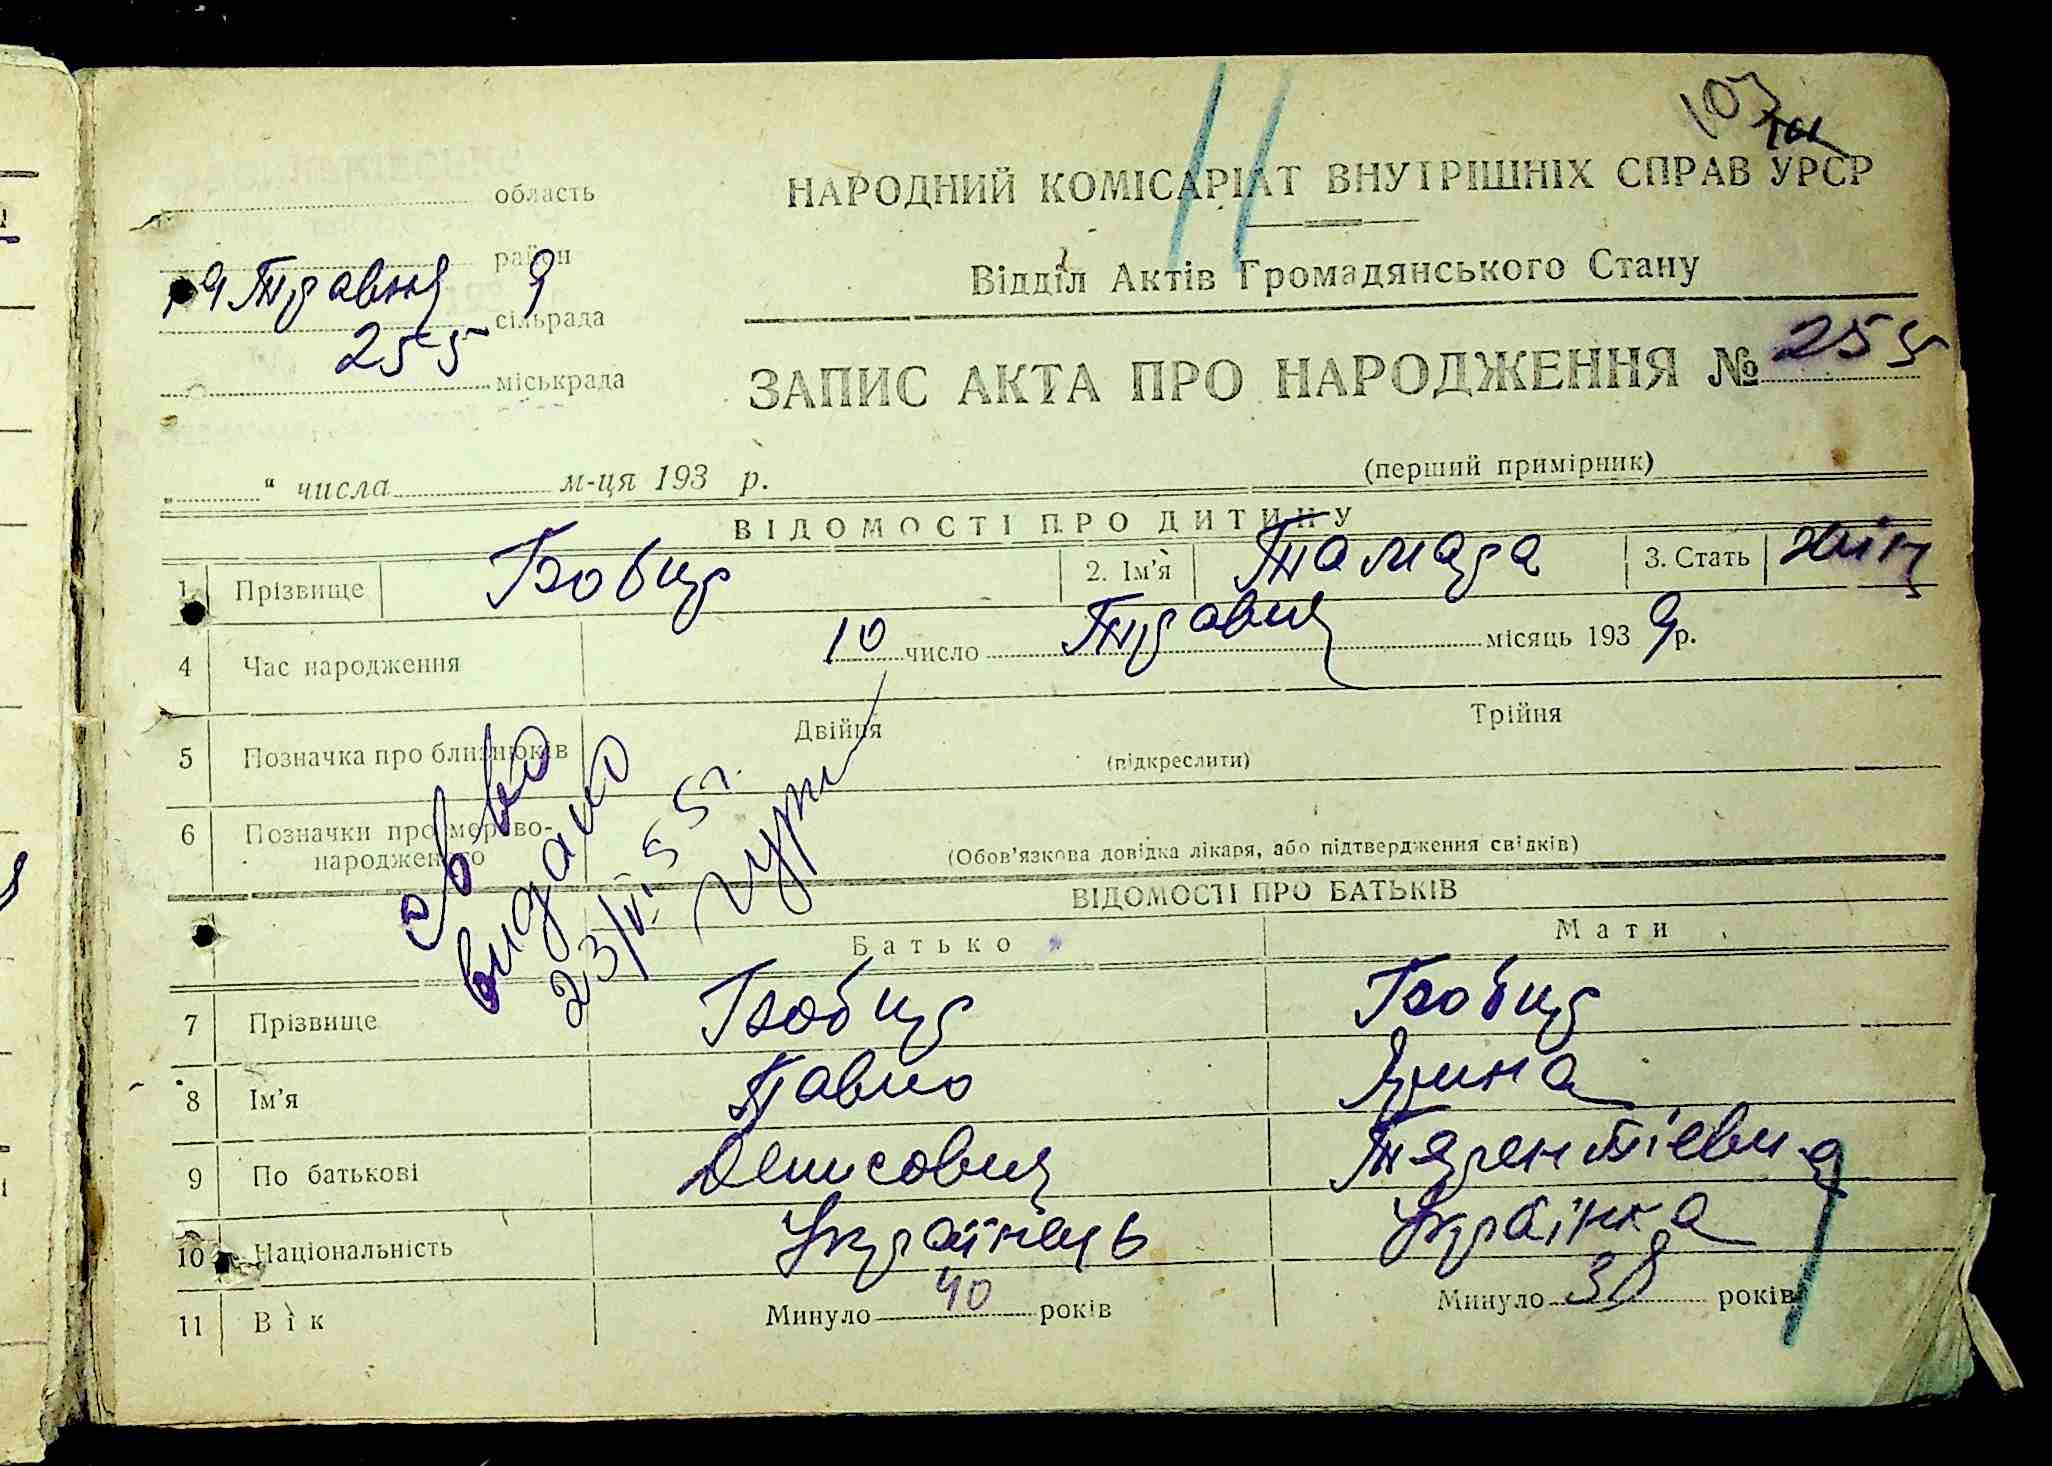 103
область
НАРОДНИЙ КОМІСАРІАТ ВНУТРІШНІХ СПРАВ УРСР
район
Відділ Актів Громадянського Стану
Травня 9
сільрада
255
міськрада
ЗАПИС АКТА ПРО НАРОДЖЕННЯ № 255
„ “ числа м-ця 193 р.
(перший примірник)
ВІДОМОСТІ ПРО ДИТИНУ
1 Прізвище Бовкур 2. Ім'я Тамара 3. Стать жін
4 Час народження 10 число Травня місяць 1939 р.
5 Позначка про близнюків Двійня Трійня
(підкреслити)
6 Позначки про мертво-
народженого
(Обов'язкова довідка лікаря, або підтвердження свідків)
св во
видано
23/VI 55 г.
ВІДОМОСТІ ПРО БАТЬКІВ
Батько Мати
7 Прізвище
8 Ім'я Павло Ярина
9 По батькові Денисович Терентіевна
10 Національність Українець Українка
11 Вік Минуло 40 років Минуло 38 років